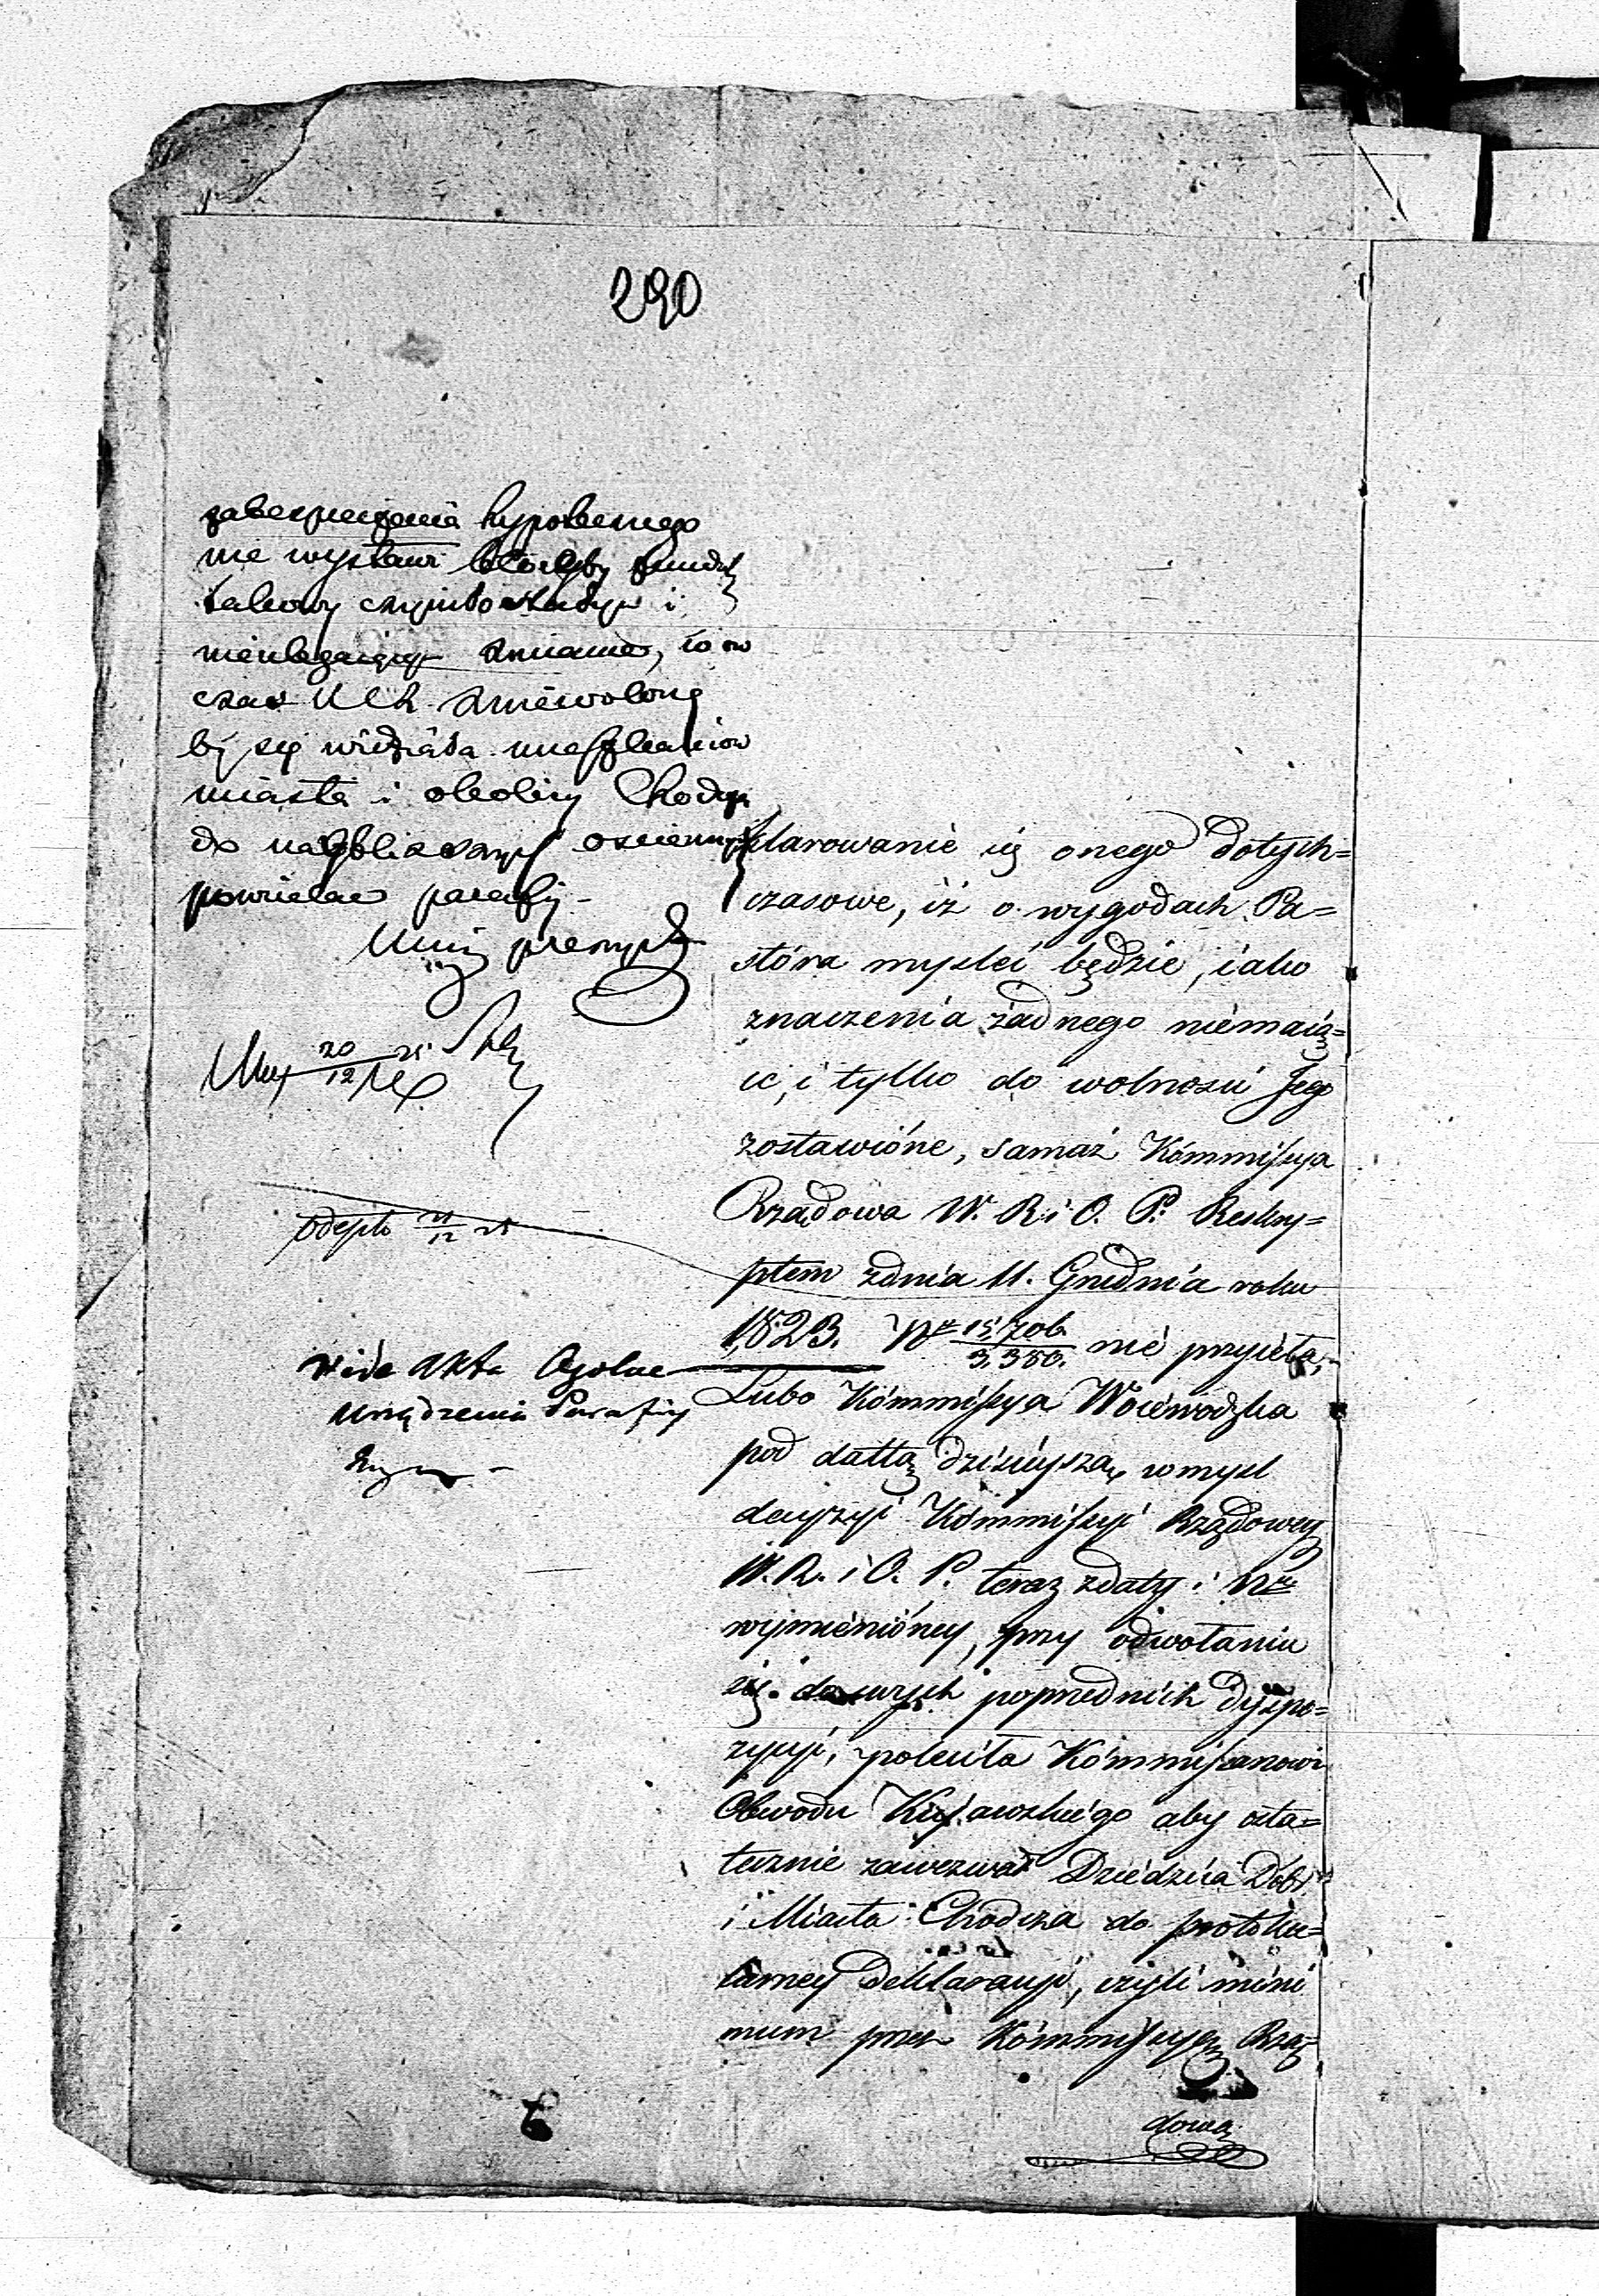 290
zabespieczenia hypotecznego
nie wystawi któreby fundusz
takowy czynito stałym i
nieulegaiącym zmianie, to w
czas zniewoloną
by się widziała mieszkańców
miasta i okolicy Chodcza
do naybliższych
powcielać parafij –
20/12 25
vide Akta Ogólne
urządzenia Parafiy
klarowanie się onego dotych=
czasowe, iż o wygodach Pa=
stóra mysleć będzie, iako
znaczenia żadnego niemaią=
ic, i tylko do wolnosci Jego
zostawióne, samaż Kómmissya
Rządowa W. R. i O. P. Reskry=
ptem zdnia 11. Grudnia roku
1823. Nr 15,706./3,350. nie przyięła,
Lubo Kómmissya Woiewodzka
pod dattą dzisieyszą, wmysl
decyzyi Kómmissyi Rządowey
W. R. i O. P. teraz zdaty i Nru
wymienióney, przy odwołaniu
się do swych poprzednich dyspo=
zycyi, poleciła Kómmissarzowi
Obwodu Kujawskiego aby osta=
tecznie zawezwał Dziedzica Dóbr
i Miasta Chodcza do protoku=
larney Deklaracyi, czyli mini
mum przez Kómmissyą Rzą=
dową